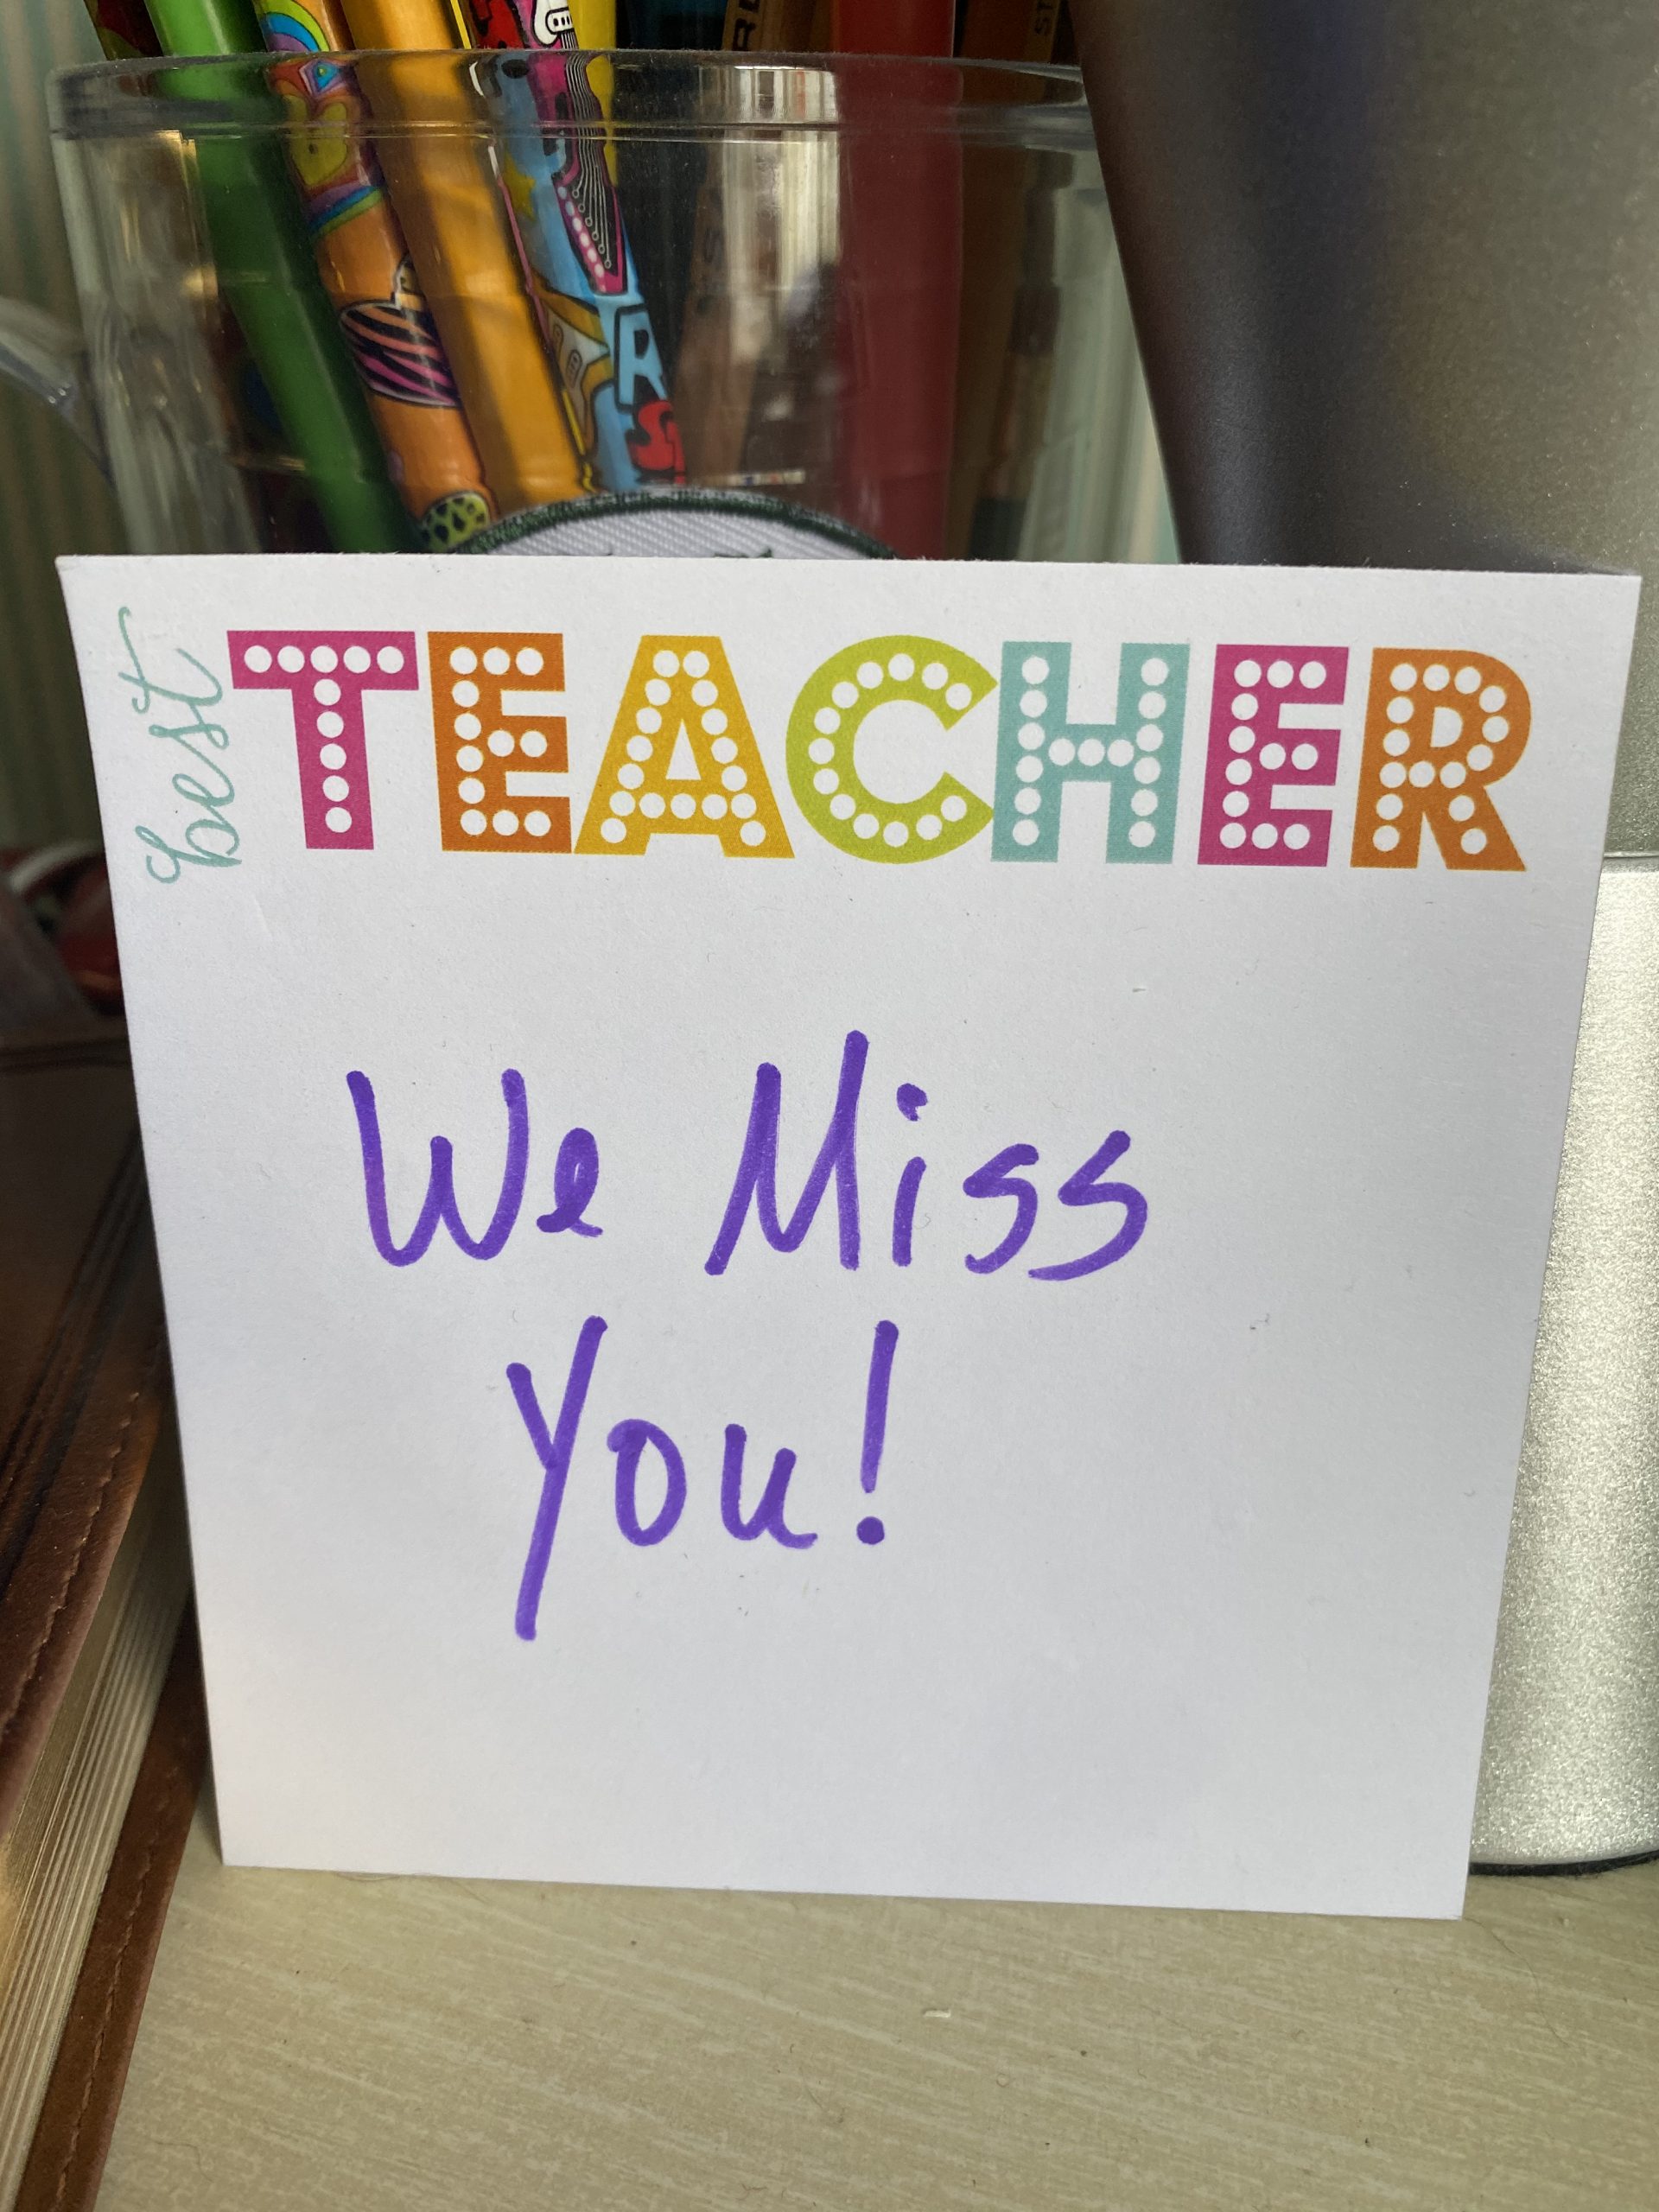 best TEACHER
We Miss
You!